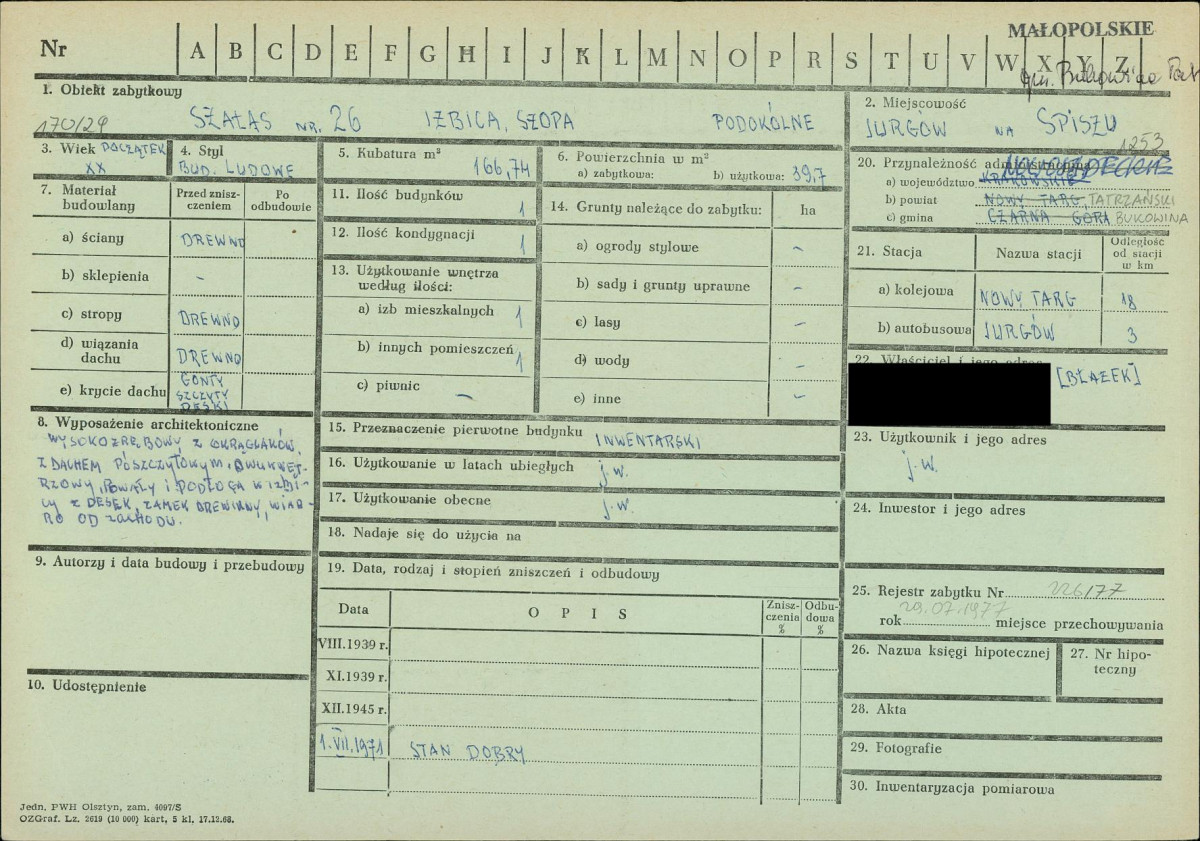 MAŁOPOLSKIE
Nr A B C D E F G H I J K L M N O P R S T U V W X Y Z
gm. Bukowina Tat
1. Obiekt zabytkowy
170/29 SZAŁAS NR. 26 IZBICA, SZOPA PODOKÓLNE
2. Miejscowość
JURGÓW NA SPISZU
1253
3. Wiek POCZĄTEK
XX
4. Styl
BUD. LUDOWE
5. Kubatura m³
166,74
6. Powierzchnia w m²
a) zabytkowa: b) użytkowa: 39,7
7. Materiał budowlany
Przed zniszczeniem
Po odbudowie
a) ściany DREWNO
b) sklepienia –
c) stropy DREWNO
d) wiązania dachu DREWNO
e) krycie dachu GONTY
SZCZYTY
DESKI
8. Wyposażenie architektoniczne
WYSOKOZRĘBOWY Z OKRĄGLAKÓW,
Z DACHEM PÓŁSZCZYTOWYM, DWUWNĘT-
RZOWY, POWAŁY I PODŁOGA W IZBI-
CY Z DESEK, ZAMEK DREWIANY, WIAT-
RO OD ZACHODU.
9. Autorzy i data budowy i przebudowy
10. Udostępnienie
11. Ilość budynków
1
12. Ilość kondygnacji
1
13. Użytkowanie wnętrza
według ilości:
a) izb mieszkalnych 1
b) innych pomieszczeń 1
c) piwnic –
14. Grunty należące do zabytku: ha
a) ogrody stylowe –
b) sady i grunty uprawne –
c) lasy –
d) wody –
e) inne –
15. Przeznaczenie pierwotne budynku INWENTARSKI
16. Użytkowanie w latach ubiegłych j.w.
17. Użytkowanie obecne j.w.
18. Nadaje się do użycia na
19. Data, rodzaj i stopień zniszczeń i odbudowy
Data O P I S Znisz-
czenia
% Odbu-
dowa
%
VIII.1939 r.
XI.1939 r.
XII.1945 r.
1.VII.1971 STAN DOBRY
20. Przynależność administracyjna
NOWOSĄDECKIE
a) województwo KRAKOWSKIE
b) powiat NOWY TARG, TATRZAŃSKI
c) gmina CZARNA GÓRA BUKOWINA
21. Stacja Nazwa stacji Odległość
od stacji
w km
a) kolejowa NOWY TARG 18
b) autobusowa JURGÓW 3
22. Właściciel i jego adres
[BŁAZEK]
23. Użytkownik i jego adres
j.w.
24. Inwestor i jego adres
25. Rejestr zabytku Nr 226/77
29.07.1977
rok miejsce przechowywania
26. Nazwa księgi hipotecznej
27. Nr hipo-
teczny
28. Akta
29. Fotografie
30. Inwentaryzacja pomiarowa
Jedn. PWH Olsztyn, zam. 4097/S
OZGraf. Lz. 2619 (10 000) kart, 5 kl. 17.12.68.